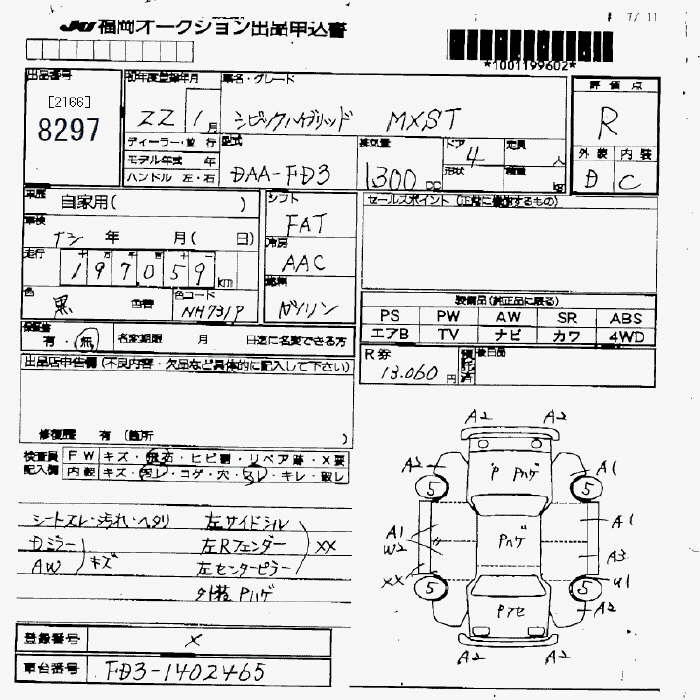 JU 福岡オークション出品申込書
7/11
*1001199602*
出品番号
[2166]
8297
初年度登録年月 車名・グレード
22 1月 シビックハイブリッド MXST
ディーラー・並行
モデル年式 年
ハンドル 左・右
型式 排気量 ドア 定員
DAA-FD3 1300 CC 4 人
形状 積載 kg
評価点
R
外装 内装
D C
車歴 自家用( )
車検 ナシ 年 月( 日)
走行 197059 km
色 黒 色替 色コード NH731P
シフト
FAT
冷房
AAC
燃料
ガソリン
セールスポイント (正常に機能するもの)
装備品(純正品に限る)
PS PW AW SR ABS
エアB TV ナビ カワ 4WD
保証書 有・無 名変期限 月 日迄に名変できる方
R券 13,060円 預託済 後日品
出品店申告欄(不良内容・欠品など具体的に記入して下さい)
修復歴 有 (箇所 )
検査員 FW キズ・飛石・ヒビ割・リペア跡・X要
記入欄 内装 キズ・汚レ・コゲ・穴・スレ・キレ・取レ
シートスレ・汚れ・ヘタリ 左サイドシル
Dミラー キズ 左Rフェンダー XX
AW 左センターピラー
外装 Pハゲ
A2 A2
A2 P Pハゲ A1
5 5
A1 W2 Pハゲ A1
A3
XX U1
5 5
Pアセ A2
A2 A2
登録番号 X
車台番号 FD3-1402465